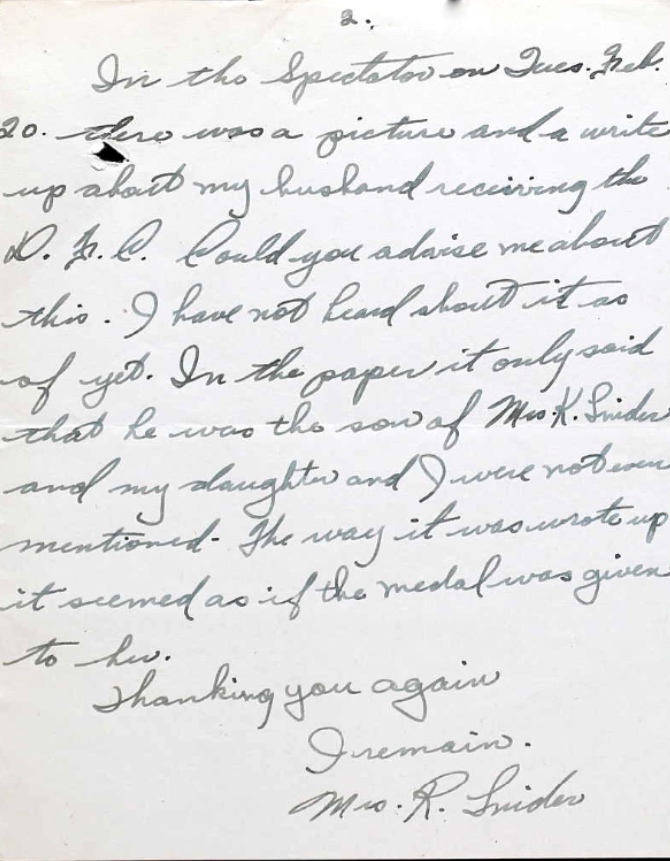 2.
In the Spectator on Tues. Feb.
20. there was a picture and a write
up about my husband receiving the
D. F. C. Could you advise me about
this. I have not heard about it as
of yet. In the paper it only said
that he was the son of Mrs. K. Snider
and my daughter and I were not even
mentioned. The way it was wrote up
it seemed as if the medal was given
to her.
Thanking you again
I remain.
Mrs. R. Snider